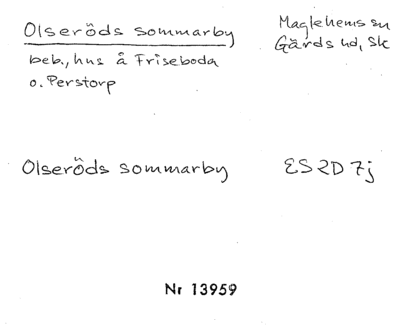 Olseröds sommarby
Maglehems sn
Gärds hd, Sk
beb., hus å Friseboda
o. Perstorp
Olseröds sommarby
ES 2D 7j
Nr 13959